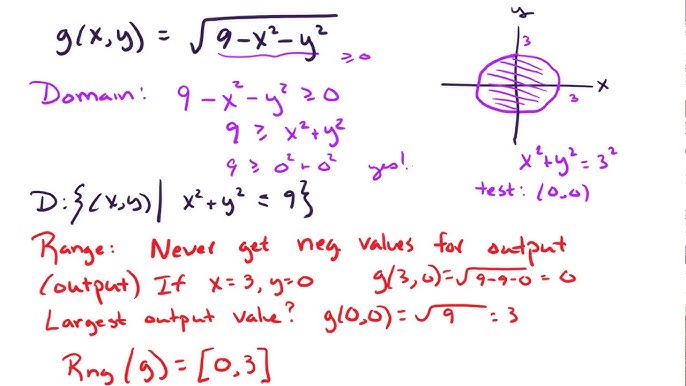 g(x,y) = √(9-x²-y²)
≥0
y
3
x
3
Domain: 9-x²-y² ≥ 0
9 ≥ x²+y²
9 ≥ 0²+0² yes!
x²+y²=3²
test: (0,0)
D: {(x,y) | x²+y² = 9}
Range: Never get neg values for output
(output) If x=3, y=0 g(3,0)=√(9-9-0) = 0
Largest output value? g(0,0) = √9 = 3
Rng(g) = [0,3]